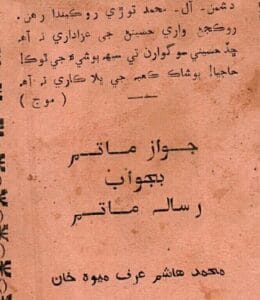 دشمن۔ آل۔ محمد توڙي روڪيندا رهن.
روڪجي واري حسينع جي عزاداري نہ آھ
ڇڏ حسيني سوگوارن تي سھہ پوشيءَ جي ٽوڪ!
حاجيا! پوشاڪ ڪعبہ جي ڀلا ڪاري نہ آھ
( موج )
جواز ماتم
بجواب
رسالہ ماتم
محمد هاشم عرف ميوه خان